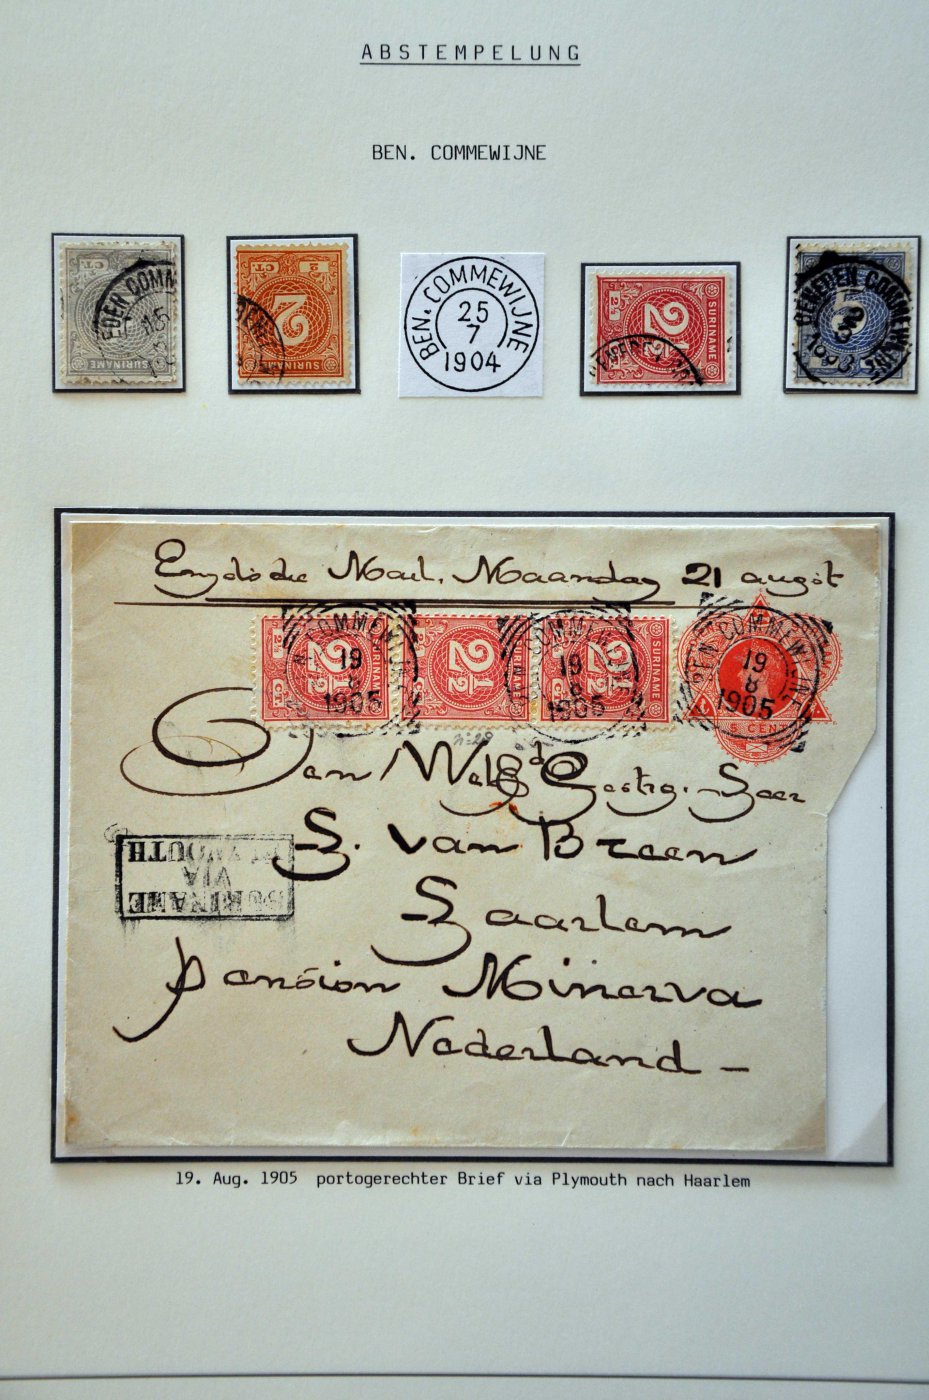 ABSTEMPELUNG
BEN. COMMEWIJNE
CT.
EDEN COMM
SURINAME
CT. 2
2
SURINAME
BEN. COMMEWIJNE
25
7
1904
2½
SURINAME
BENEDEN COMMEWIJNE
5
Engelsche Mail. Maandag 21 augst
N COMMEWIJNE
19
8
1905
2½
CT.
2½
2½
SURINAME
EN COMMEWIJNE
19
8
1905
BEN COMMEWIJNE
19
8
1905
5 CENT
Aan Welgd Gestrg. Heer
H. van Breen
Haarlem
pension Minerva
Nederland –
SURINAME
VIA
PLYMOUTH
19. Aug. 1905 portogerechter Brief via Plymouth nach Haarlem